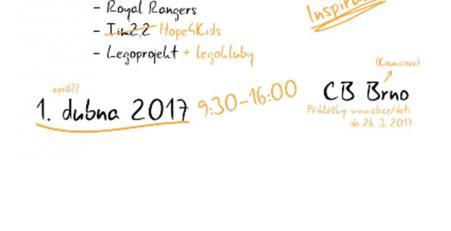 - Royal Rangers
- Tim2,2 Hope4Kids
- Legoprojekt + legokluby
Inspira
april??
1. dubna 2017 9:30-16:00
(Kounicova)
CB Brno
Přihlášky: www.cb.cz/deti
do 26. 3. 2017